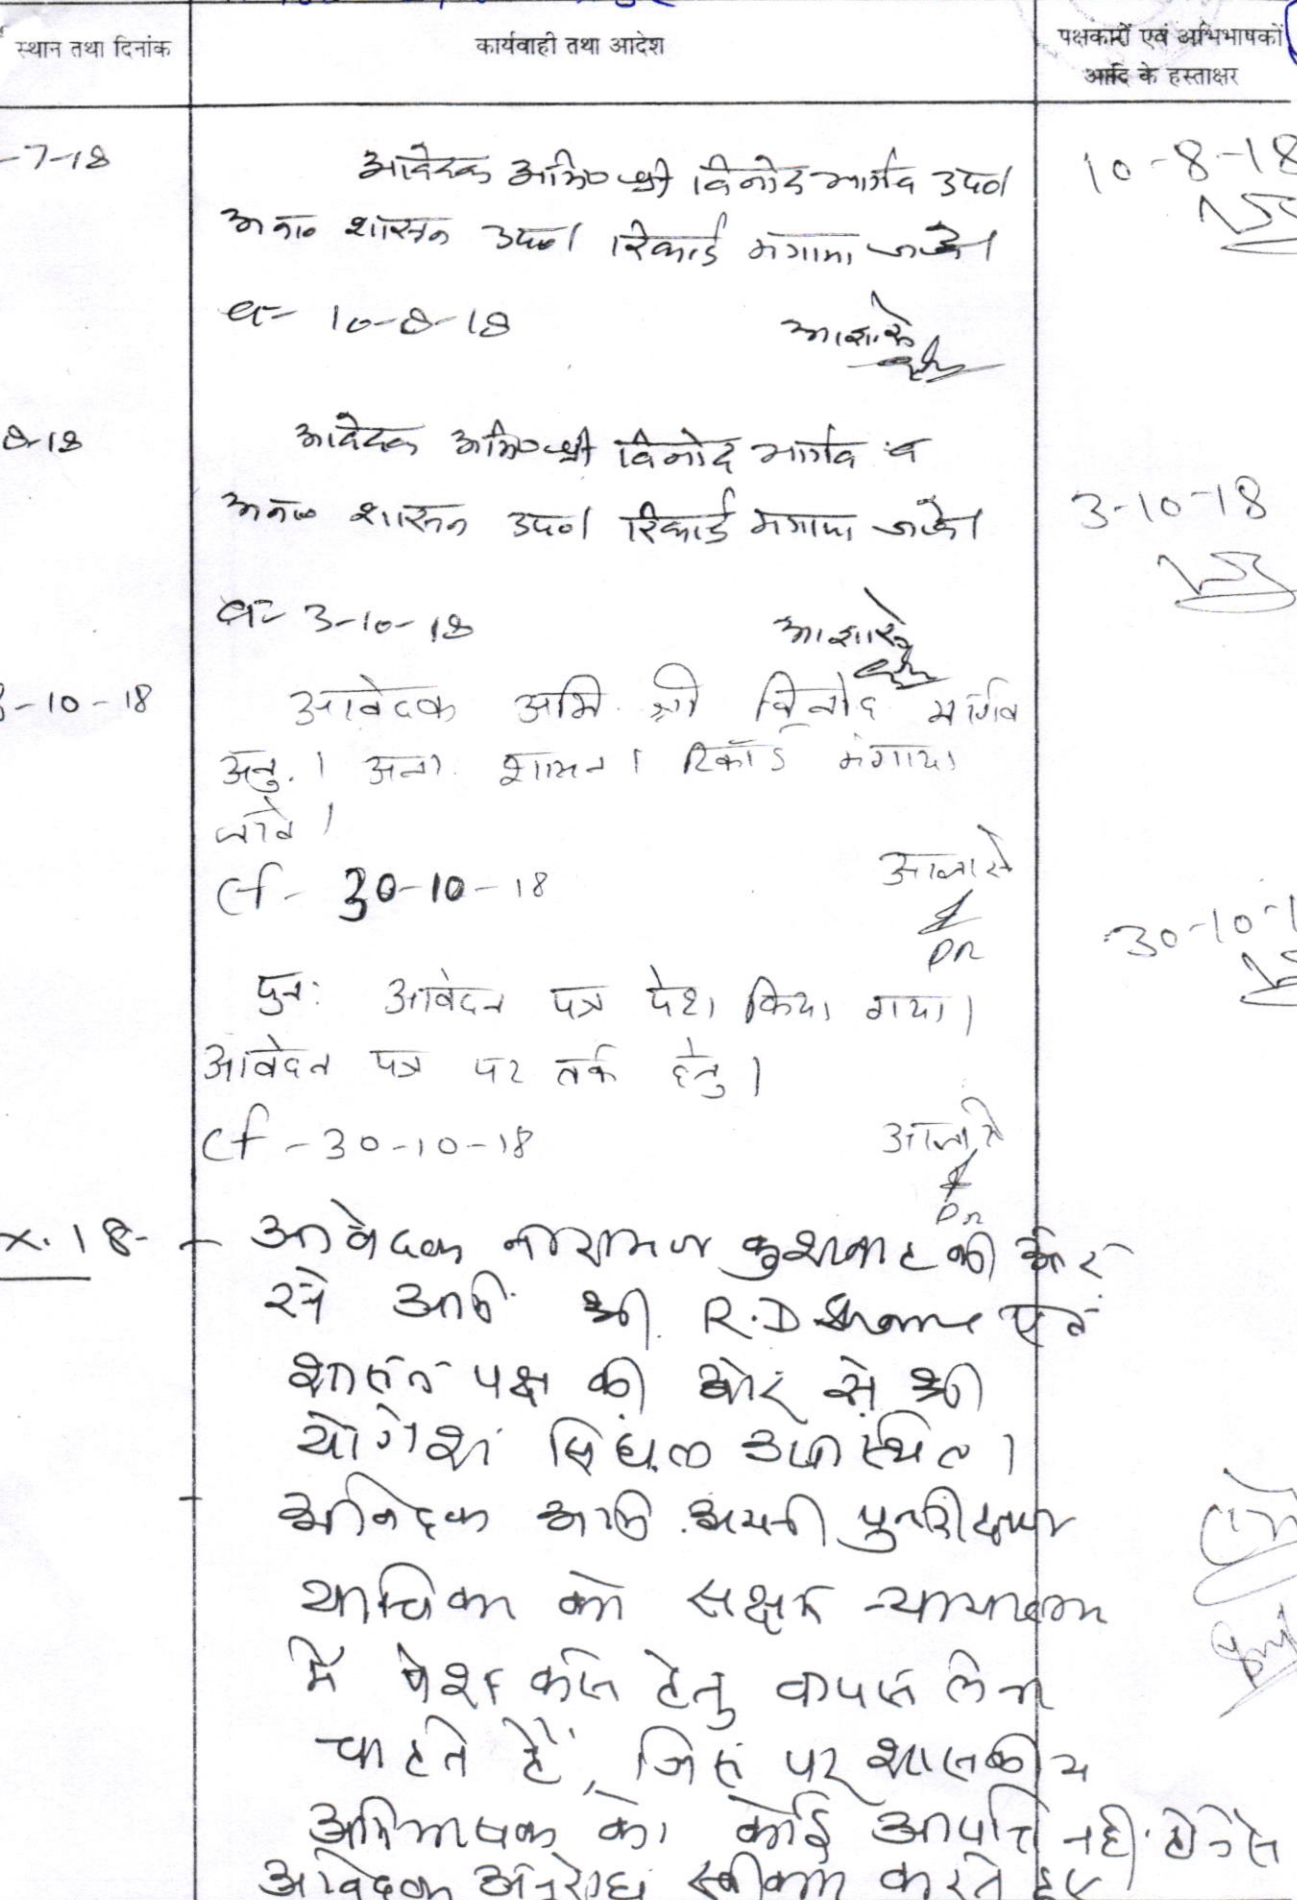 स्थान तथा दिनांक
कार्यवाही तथा आदेश
पक्षकारों एवं अभिभाषकों
आदि के हस्ताक्षर
-7-18
आवेदक अभि० श्री विनोद भार्गव उप०।
अना० शासन उप०। रिकार्ड मंगाया जावे।
10-8-18
10-8-18
आज्ञा से
8-18
आवेदक अभि० श्री विनोद भार्गव व
अना० शासन उप०। रिकार्ड मंगाया जावे।
3-10-18
3-10-18
आज्ञा से
-10-18
आवेदक अभि. श्री विनोद भार्गव
अनु.। अना. शासन। रिकॉर्ड मंगाया
जावे।
cf - 30-10-18
आज्ञा से
30-10-1
पुनः आवेदन पत्र पेश किया गया।
आवेदन पत्र पर तर्क हेतु।
cf - 30-10-18
आज्ञा से
x.18-
आवेदक नारायण कुशवाह की ओर
से अभि. श्री R.D Sharma एवं
शासन पक्ष की ओर से श्री
योगेश सिंघल उपस्थित।
आवेदक अभि. अपनी पुनरीक्षण
याचिका को सक्षम न्यायालय
में पेश करने हेतु वापस लेना
चाहते हैं, जिस पर शासकीय
अभिभाषक को कोई आपत्ति नहीं होने से
आवेदक अनुरोध स्वीकार करते हुए